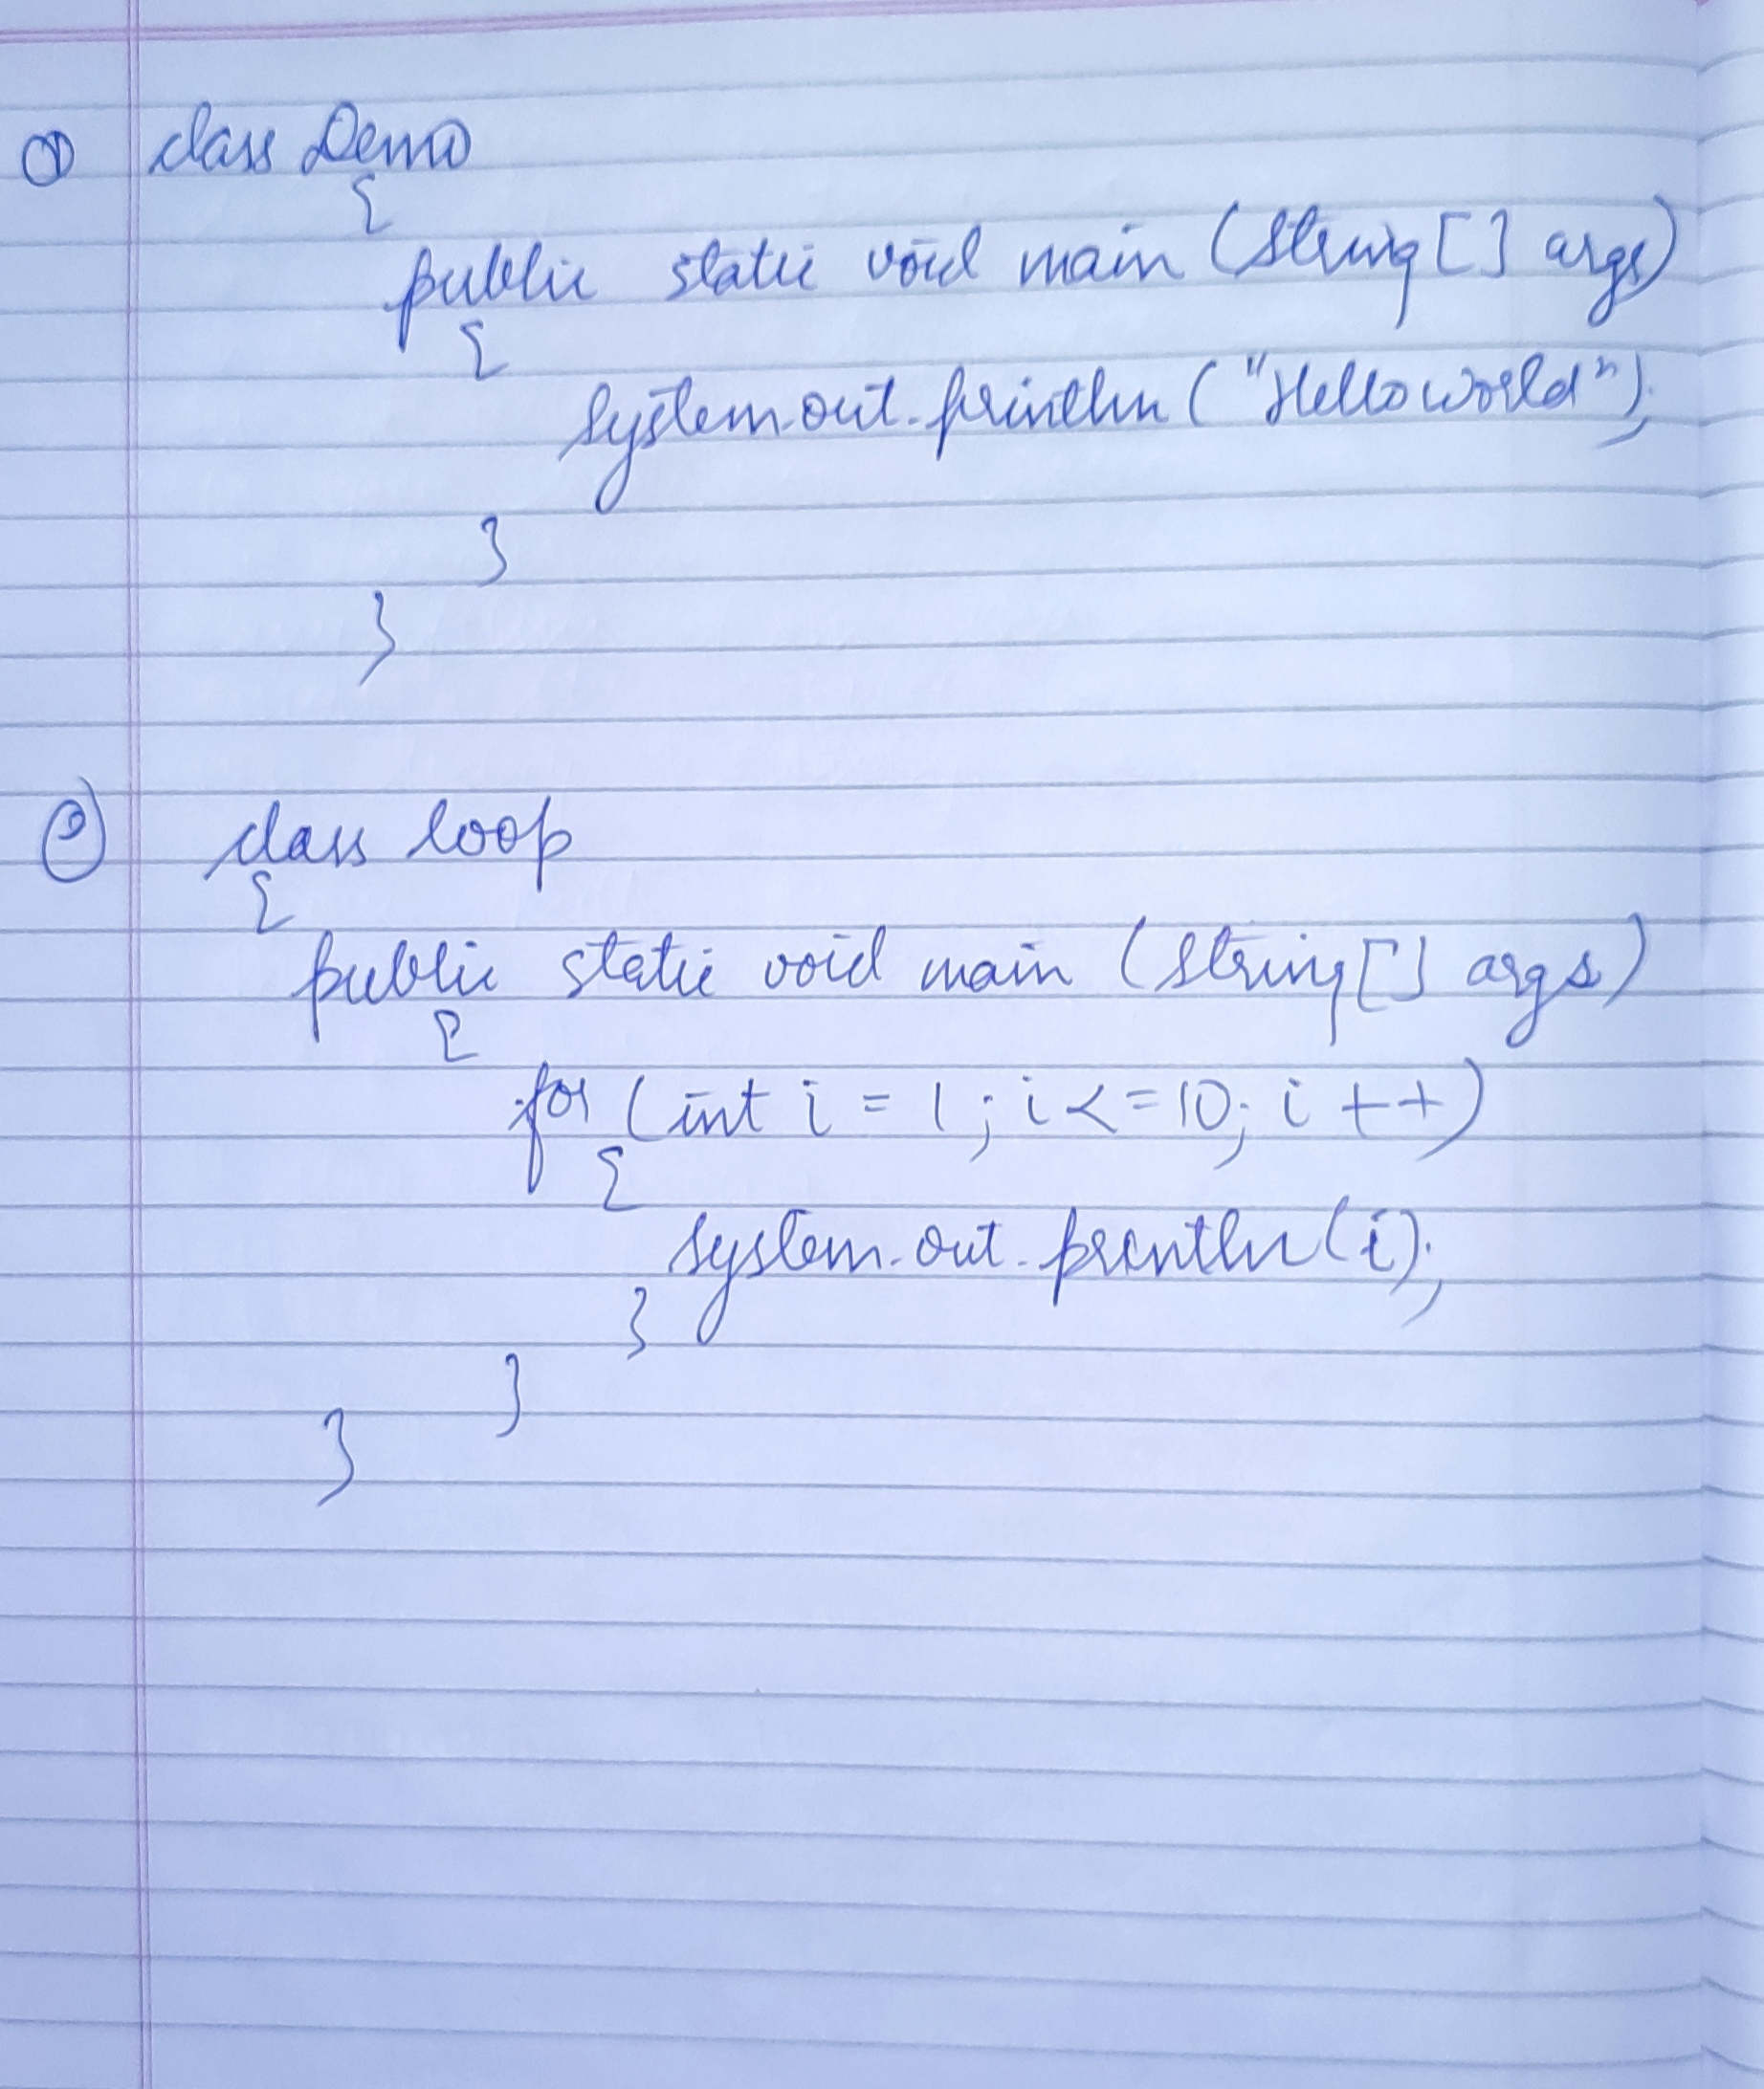 ① class Demo
{
public static void main (String [] args)
{
System.out.println ("Hello world");
}
}
② class loop
{
public static void main (String [] args)
{
for (int i = 1; i <= 10; i ++)
{
System.out.println (i);
}
}
}